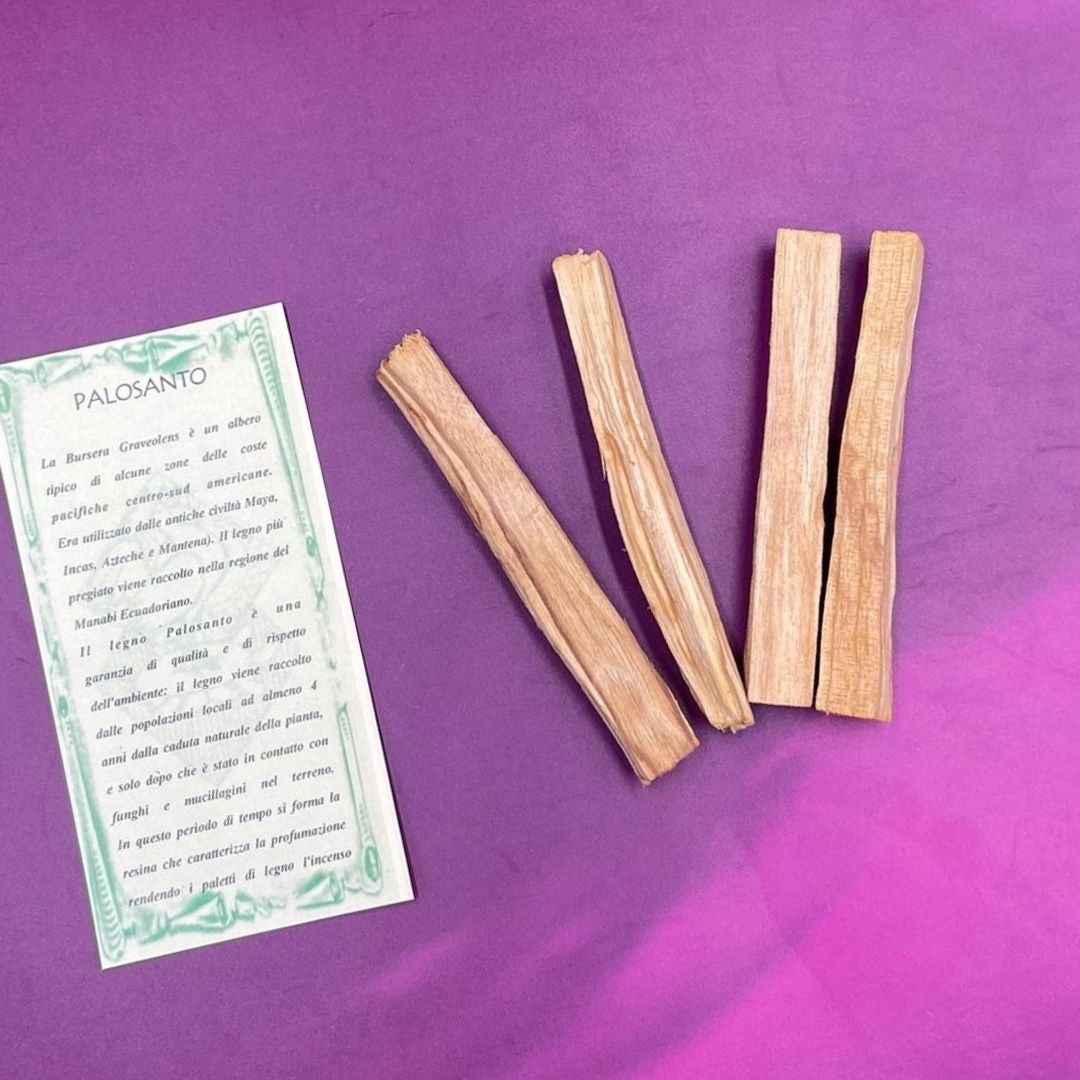 PALOSANTO
La Bursera Graveolens è un albero
tipico di alcune zone delle coste
pacifiche centro-sud americane.
Era utilizzato dalle antiche civiltà Maya,
Incas, Azteche e Mantena). Il legno più
pregiato viene raccolto nella regione del
Manabi Ecuadoriano.
Il legno Palosanto è una
garanzia di qualità e di rispetto
dell'ambiente: il legno viene raccolto
dalle popolazioni locali ad almeno 4
anni dalla caduta naturale della pianta,
e solo dopo che è stato in contatto con
funghi e mucillagini nel terreno.
In questo periodo di tempo si forma la
resina che caratterizza la profumazione
rendendo i paletti di legno l'incenso